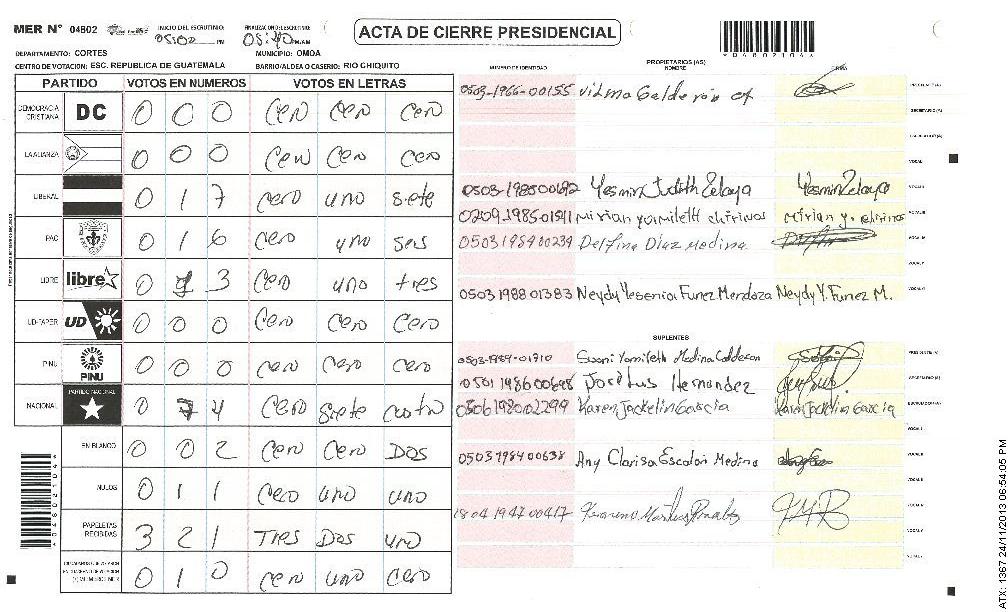 MER N° 04802 INICIO DEL ESCRUTINIO: 05:00 PM FINALIZACION DEL ESCRUTINIO: 05:40 PM/AM ACTA DE CIERRE PRESIDENCIAL
*04802104*
DEPARTAMENTO: CORTES MUNICIPIO: OMOA
CENTRO DE VOTACION: ESC. REPUBLICA DE GUATEMALA BARRIO/ALDEA O CASERIO: RIO CHIQUITO
PARTIDO VOTOS EN NUMEROS VOTOS EN LETRAS
DEMOCRACIA CRISTIANA DC 0 0 0 Cero Cero Cero
LA ALIANZA 0 0 0 Cero Cero Cero
LIBERAL 0 1 7 Cero uno siete
PAC 0 1 6 Cero uno seis
LIBRE libre 0 1 3 Cero uno tres
UD-FAPER UD 0 0 0 Cero Cero Cero
PINU PINU 0 0 0 Cero Cero Cero
NACIONAL PARTIDO NACIONAL 0 7 4 Cero siete cuatro
EN BLANCO 0 0 2 Cero Cero Dos
NULOS 0 1 1 Cero uno uno
PAPELETAS RECIBIDAS 3 2 1 Tres Dos uno
0 1 0 Cero uno Cero
NUMERO DE IDENTIDAD PROPIETARIOS (AS) NOMBRE FIRMA
0503-1966-00155 Vilma Calderón PRESIDENTE (A)
SECRETARIO (A)
ESCRUTADOR (A)
VOCAL I
0503-198500182 Yesmin Judith Zelaya Yesmin Zelaya
0209-1985-01591 Mirian Yamileth Chirinos Mirian Y. Chirinos
0503198400239 Delfina Diaz Medina
0503198801383 Neydy Yesenia Funez Mendoza Neydy Y. Funez M.
SUPLENTES
0503-1984-01710 Yamileth Medina Calderon PRESIDENTE (A)
0501198600698 Hernandez SECRETARIO (A)
0506198002299 Karen Jackelin Garcia Karen Jackelin Garcia ESCRUTADOR (A)
0503198400638 Any Clarisa Escalon Medina
1804194700417
*04802104*
ATX: 1367 24/11/2013 06:54:05 PM